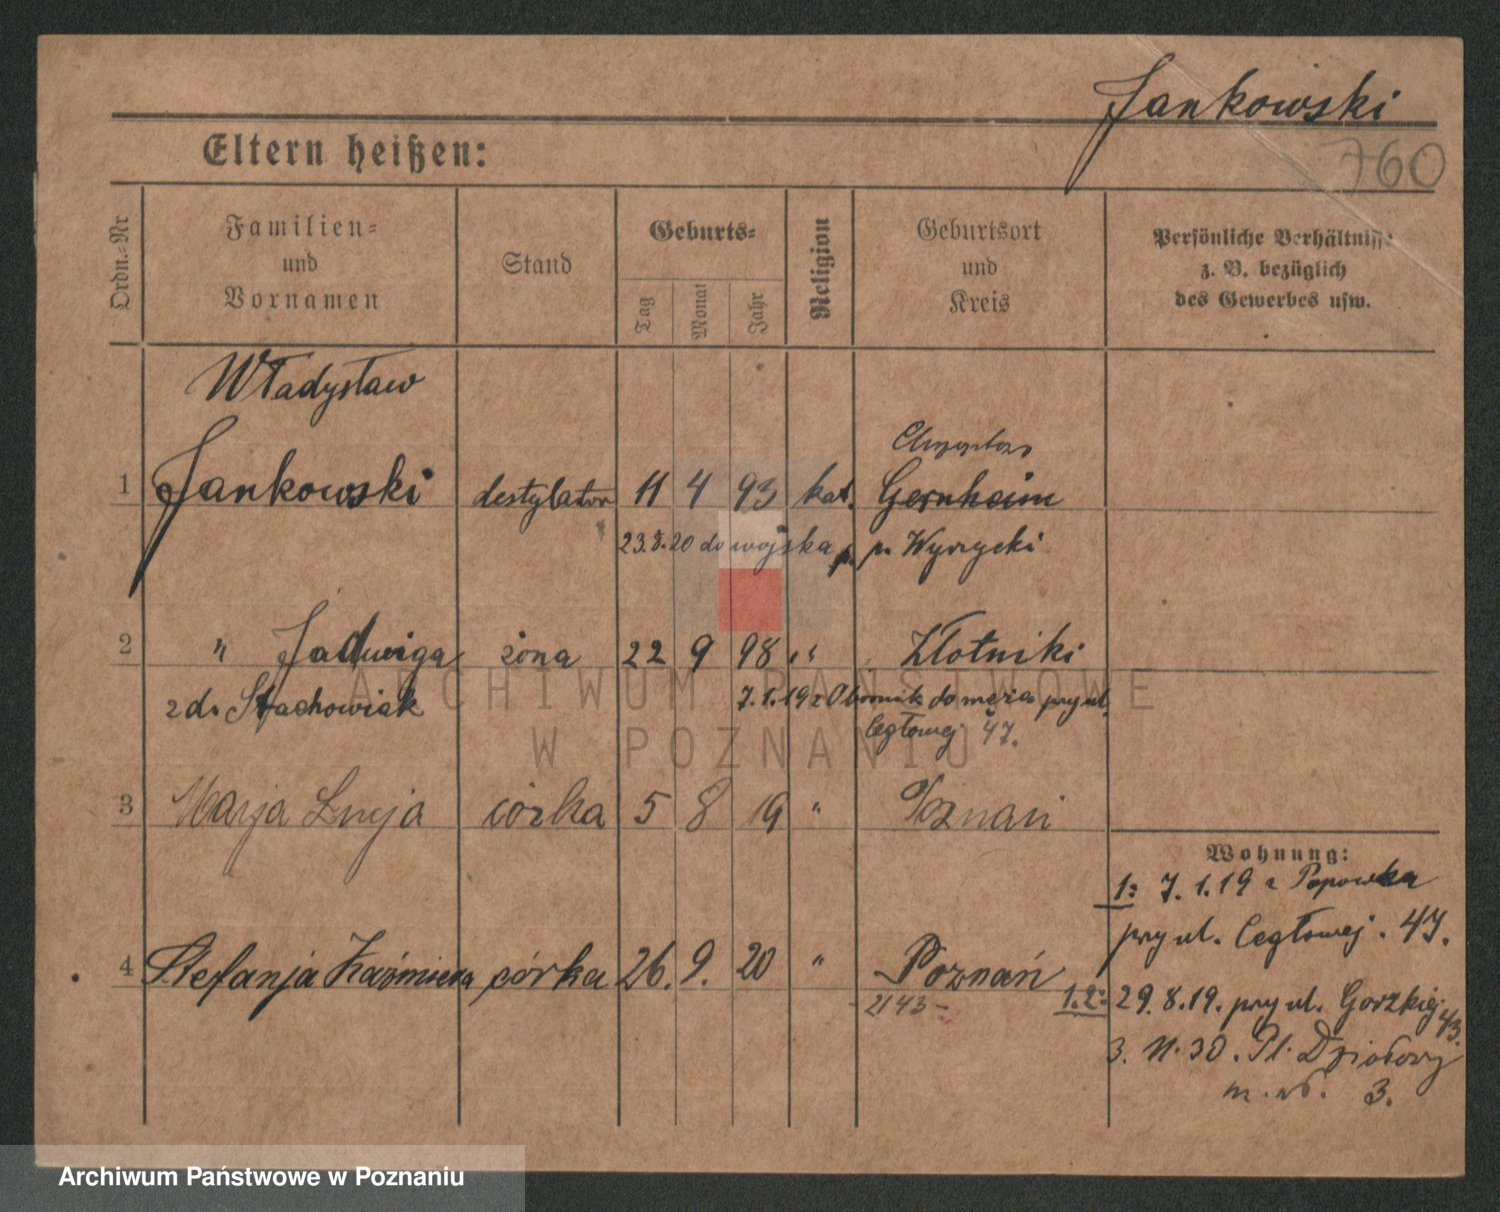 Jankowski
760
Eltern heißen:
Ordn.-Nr
Familien=
und
Vornamen
Stand
Geburts=
Tag
Monat
Jahr
Religion
Geburtsort
und
Kreis
Persönliche Verhältnisse
z. B. bezüglich
des Gewerbes usw.
Władysław
1 Jankowski destylator 11 4 93 kat. Gernheim
23.8.20 do wojska p. Wyrzycki
2 " Jadwiga żona 22 9 98 " Złotniki
z d. Stachowiak 7.1.19 z Obornik do męża przy ul.
Cegłowej 47.
3 Marja Lucja córka 5 8 19 " Poznań
Wohnung:
1: 7.1.19 z Popowka
przy ul. Cegłowej. 47.
4 Stefanja Kaźmiera córka 26. 9. 20 " Poznań
2143 -
1.2: 29.8.19. przy ul. Gorzkiej 43.
3. 11.30. Pl. Działowy
3.
ARCHIWUM PAŃSTWOWE
W POZNANIU
Archiwum Państwowe w Poznaniu